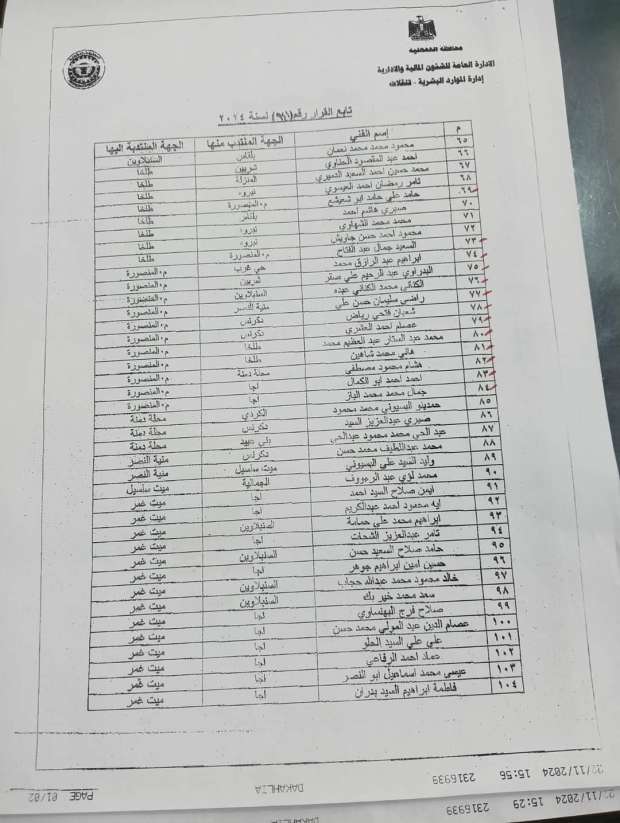 محافظة الدقهلية
الإدارة العامة للشئون المالية والادارية
إدارة الموارد البشرية - تنقلات
تابع القرار رقم (٩٨٦) لسنة ٢٠٢٤
م إسم الفني الجهة المنتدب منها الجهة المنتدبة اليها
٦٥ محمود محمد محمد نعمان بلقاس السنبلاوين
٦٦ احمد عبد المقصود الحطاوي شربين طلخا
٦٧ محمد حسين احمد السعيد الدميري المنزلة طلخا
٦٨ تامر رمضان احمد العيسوي نبروه طلخا
٦٩ حامد علي حامد ابو شعيشع م.المنصورة طلخا
٧٠ صبري هاشم احمد بلقاس طلخا
٧١ محمد محمد الشهاوي نبروه طلخا
٧٢ محمود احمد حسن جاويش نبروه طلخا
٧٣ السعيد جمال عبد الفتاح م.المنصورة طلخا
٧٤ ابراهيم عبد الرازق محمد حي غرب م.المنصورة
٧٥ البدراوي عبد الرحيم علي صقر شربين م.المنصورة
٧٦ الكناني محمد الكناني عبده السنبلاوين م.المنصورة
٧٧ راضي سليمان حسن علي منية النصر م.المنصورة
٧٨ شعبان فتحي رياض دكرنس م.المنصورة
٧٩ عصام احمد العشري دكرنس م.المنصورة
٨٠ محمد عبد الستار عبد العظيم محمد طلخا م.المنصورة
٨١ هاني محمد شاهين طلخا م.المنصورة
٨٢ هشام محمود مصطفي محلة دمنة م.المنصورة
٨٣ احمد احمد ابو الكمال اجا م.المنصورة
٨٤ جمال محمد محمد الباز اجا م.المنصورة
٨٥ حمدينو البسيوني محمد محمود الكردي محلة دمنة
٨٦ صبري عبدالعزيز السيد دكرنس محلة دمنة
٨٧ عبد الحي محمد محمود عبدالحي بني عبيد محلة دمنة
٨٨ محمد عبداللطيف محمد حسن دكرنس منية النصر
٨٩ وليد السيد علي البسيوني ميت سلسيل منية النصر
٩٠ محمد لؤي عبد الرءووف الجمالية ميت سلسيل
٩١ ايمن صلاح السيد احمد اجا ميت غمر
٩٢ ايه محمود احمد عبدالكريم اجا ميت غمر
٩٣ ابراهيم محمد علي حمامة السنبلاوين ميت غمر
٩٤ تامر عبدالعزيز الشحات اجا ميت غمر
٩٥ حامد صلاح السعيد حسن السنبلاوين ميت غمر
٩٦ حسين امين ابراهيم جوهر اجا ميت غمر
٩٧ خالد محمود محمد عبدالله حجاب السنبلاوين ميت غمر
٩٨ سعد محمد خير بك السنبلاوين ميت غمر
٩٩ صلاح فرج البهنساوي اجا ميت غمر
١٠٠ عصام الدين عبد المولي محمد حسن اجا ميت غمر
١٠١ علي علي السيد الحلو اجا ميت غمر
١٠٢ عماد احمد الرفاعي اجا ميت غمر
١٠٣ عيسي محمد اسماعيل ابو النصر اجا ميت غمر
١٠٤ فاطمة ابراهيم السيد بدران اجا ميت غمر
22/11/2024 15:56 2316939 DAKAHLIA PAGE 01/02
22/11/2024 15:29 2316939 DAKAHLIA